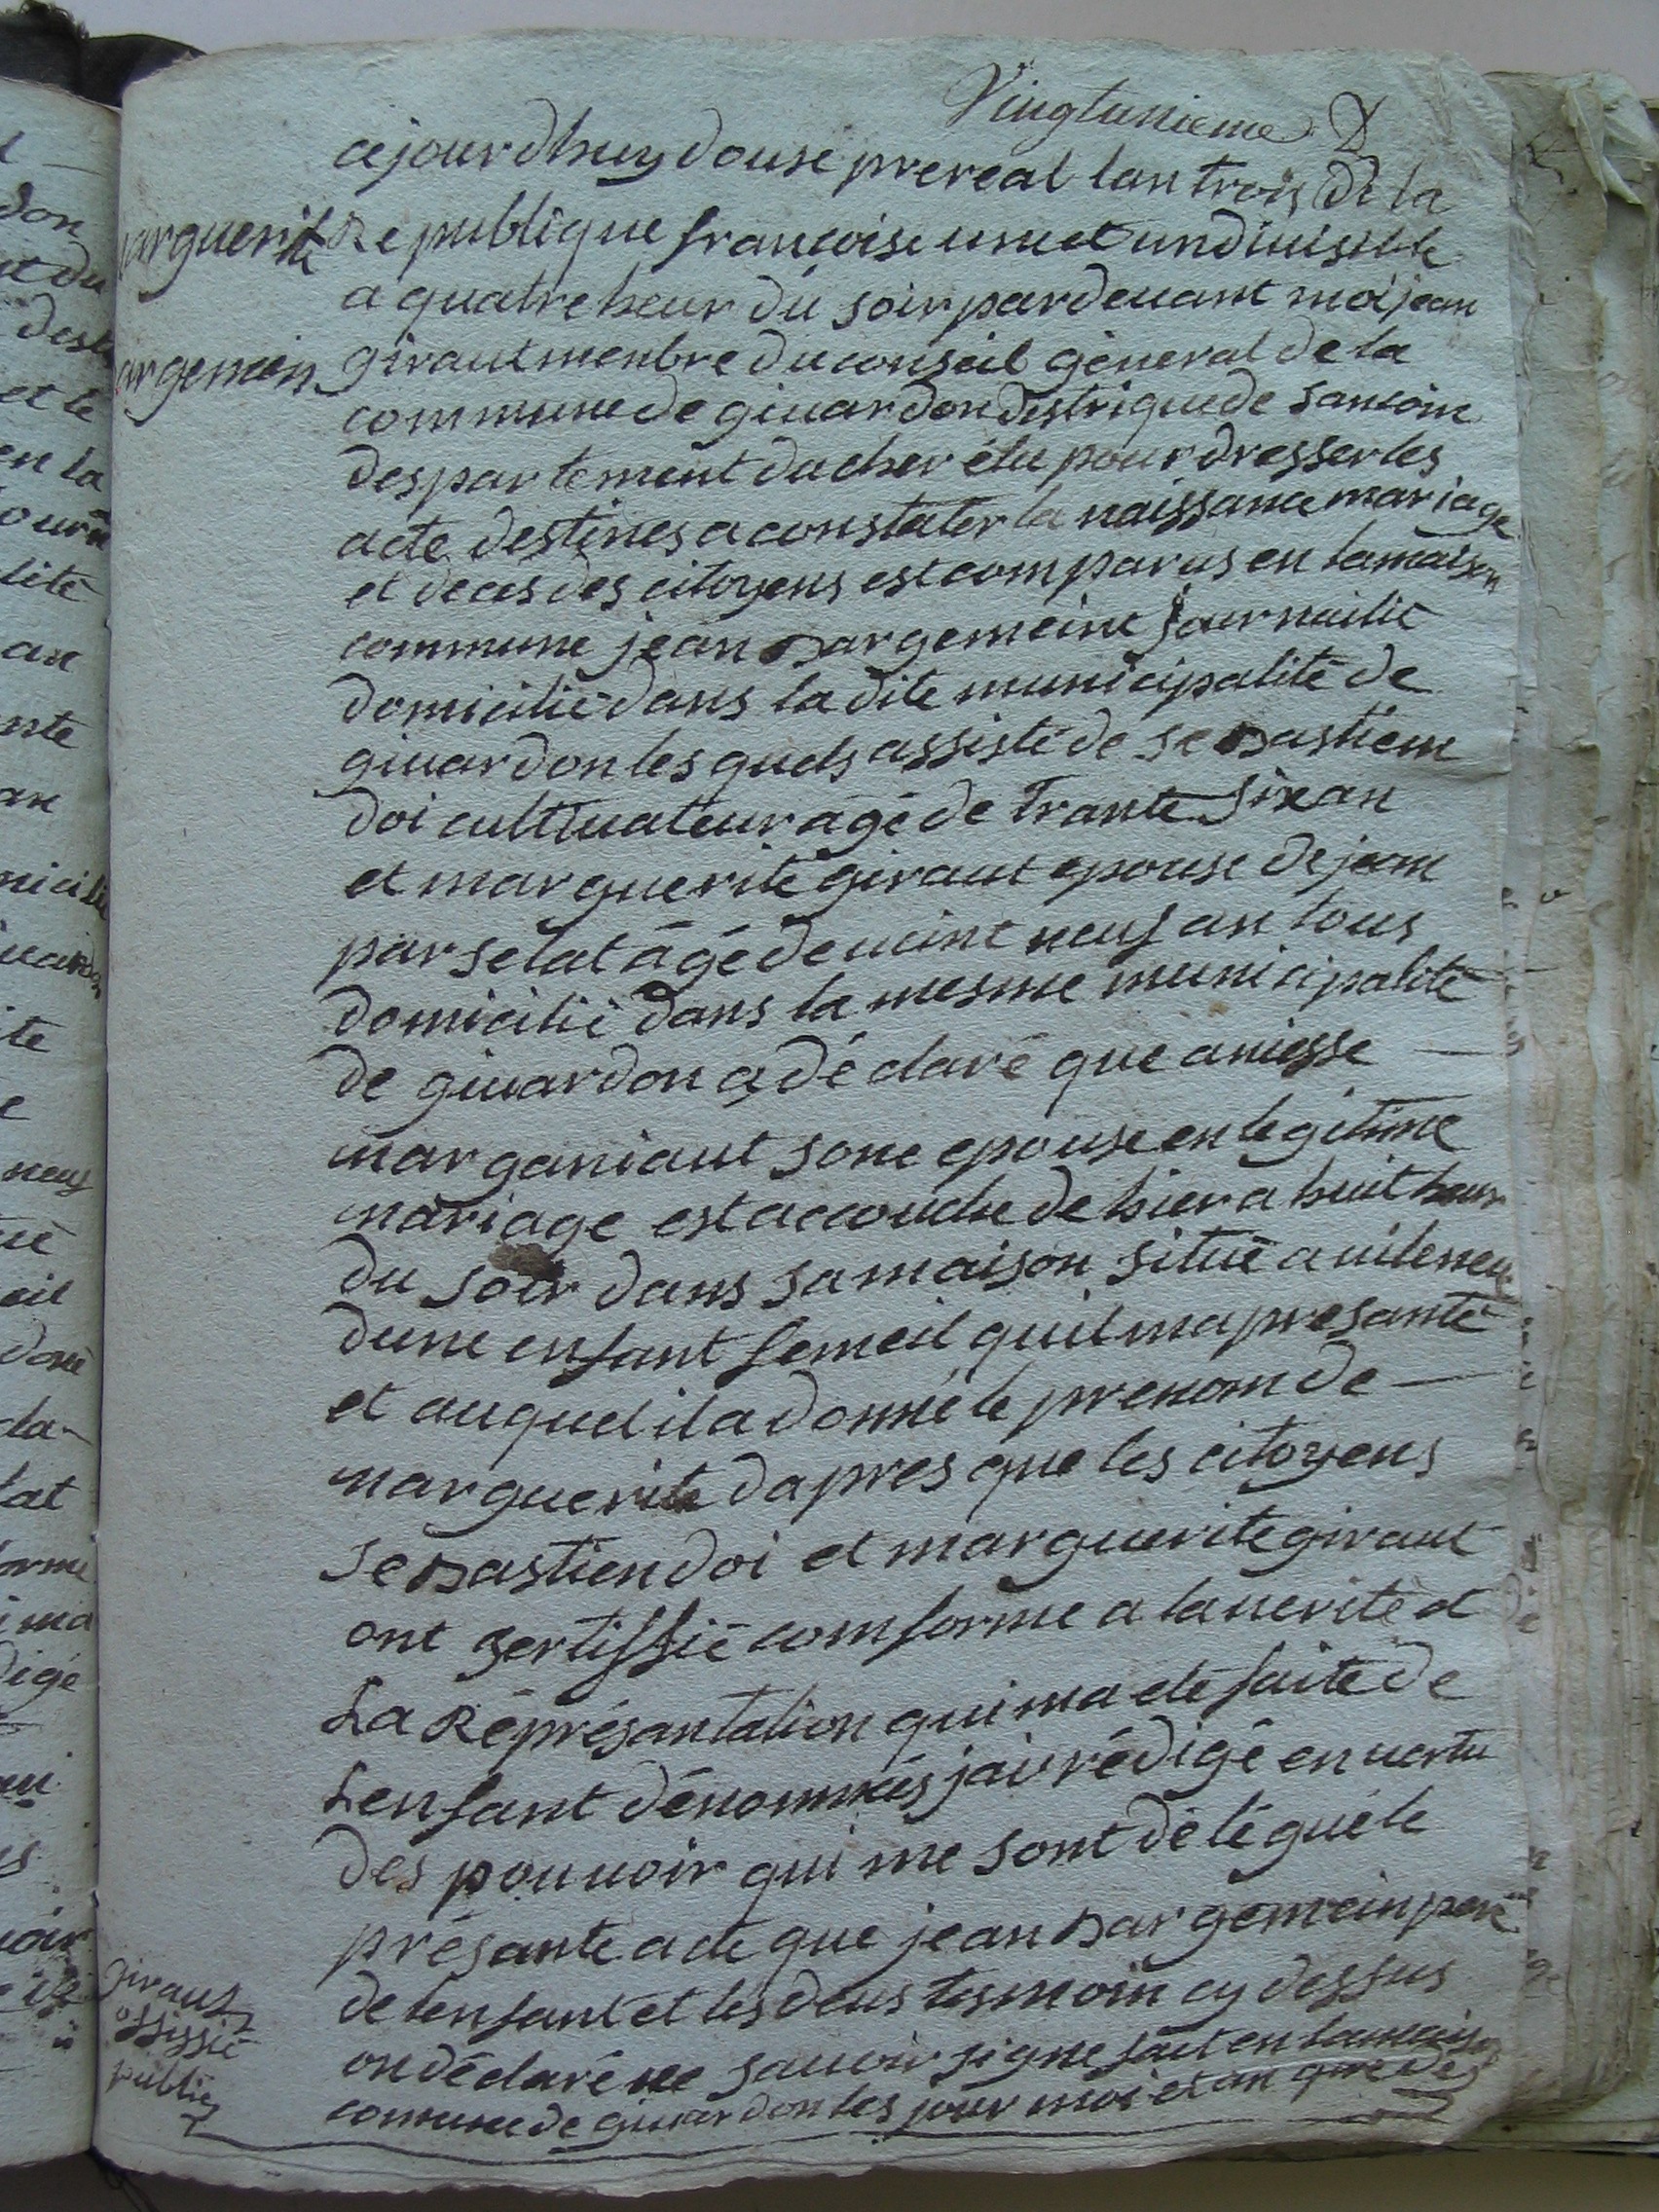 Vingtunieme
ajourdhuy douse prereal lan trois de la
marguerite
Republique francoise une et undiuisible
a quatre heur du soir par deuant moi jean
argemein
giraut menbre du conseil géneral de la
commune de giuardon destrique de sancoin
despartement du cher élu pour dresser les
acte destines a constater la naissance mariage
et deces des citoyens est comparus en la maison
commune jean Bargemeint journailié
domicilié dans la dite municipalité de
giuardon les quels assisté de seBastiem
doi cultiuateur agé de trante six an
et marguerite giraut epouse de jean
parselat âgé de uint neuf an tous
domicilié dans la mesme municipalité
de giuardon a dé claré que aniesse
marganiaut sone epouse en legitime
mariage est accouche de hier a huit heur
du soir dans sa maison situé a uileneuf
dune enfant femeil quil ma presanté
et au quel il a donné le prenom de
marguerite dapres que les citoyens
seBastien doi et marguerite giraut
ont sertiffié comforme a la uerité et
La Représantation qui ma eté faite de
Lenfant dénommés jai rédigé en uertu
des pouuoir qui me sont délégué le
présante acte que jean Bargemein pere
de lenfant et les deus tesmoin cy dessus
on déclaré ne sauoir signe fait en la maison
commune de giuardon les jour moi et an que de
giraut
offissié
public